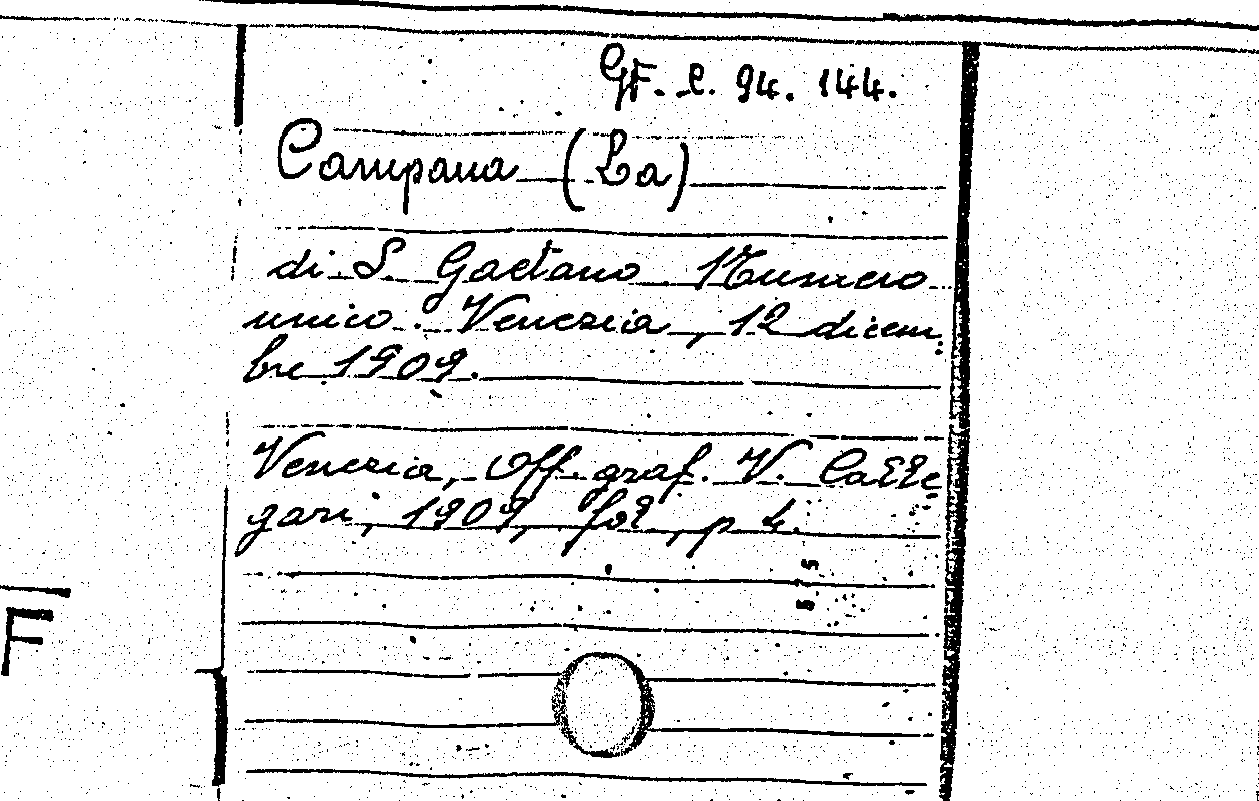 Gf. C. 94. 144.
Campana (La)
di S. Gaetano Numero
unico. Venezia, 12 dicem
bre 1909.
Venezia, Off. graf. V. Calle
gari, 1909, fol, p 4.
F